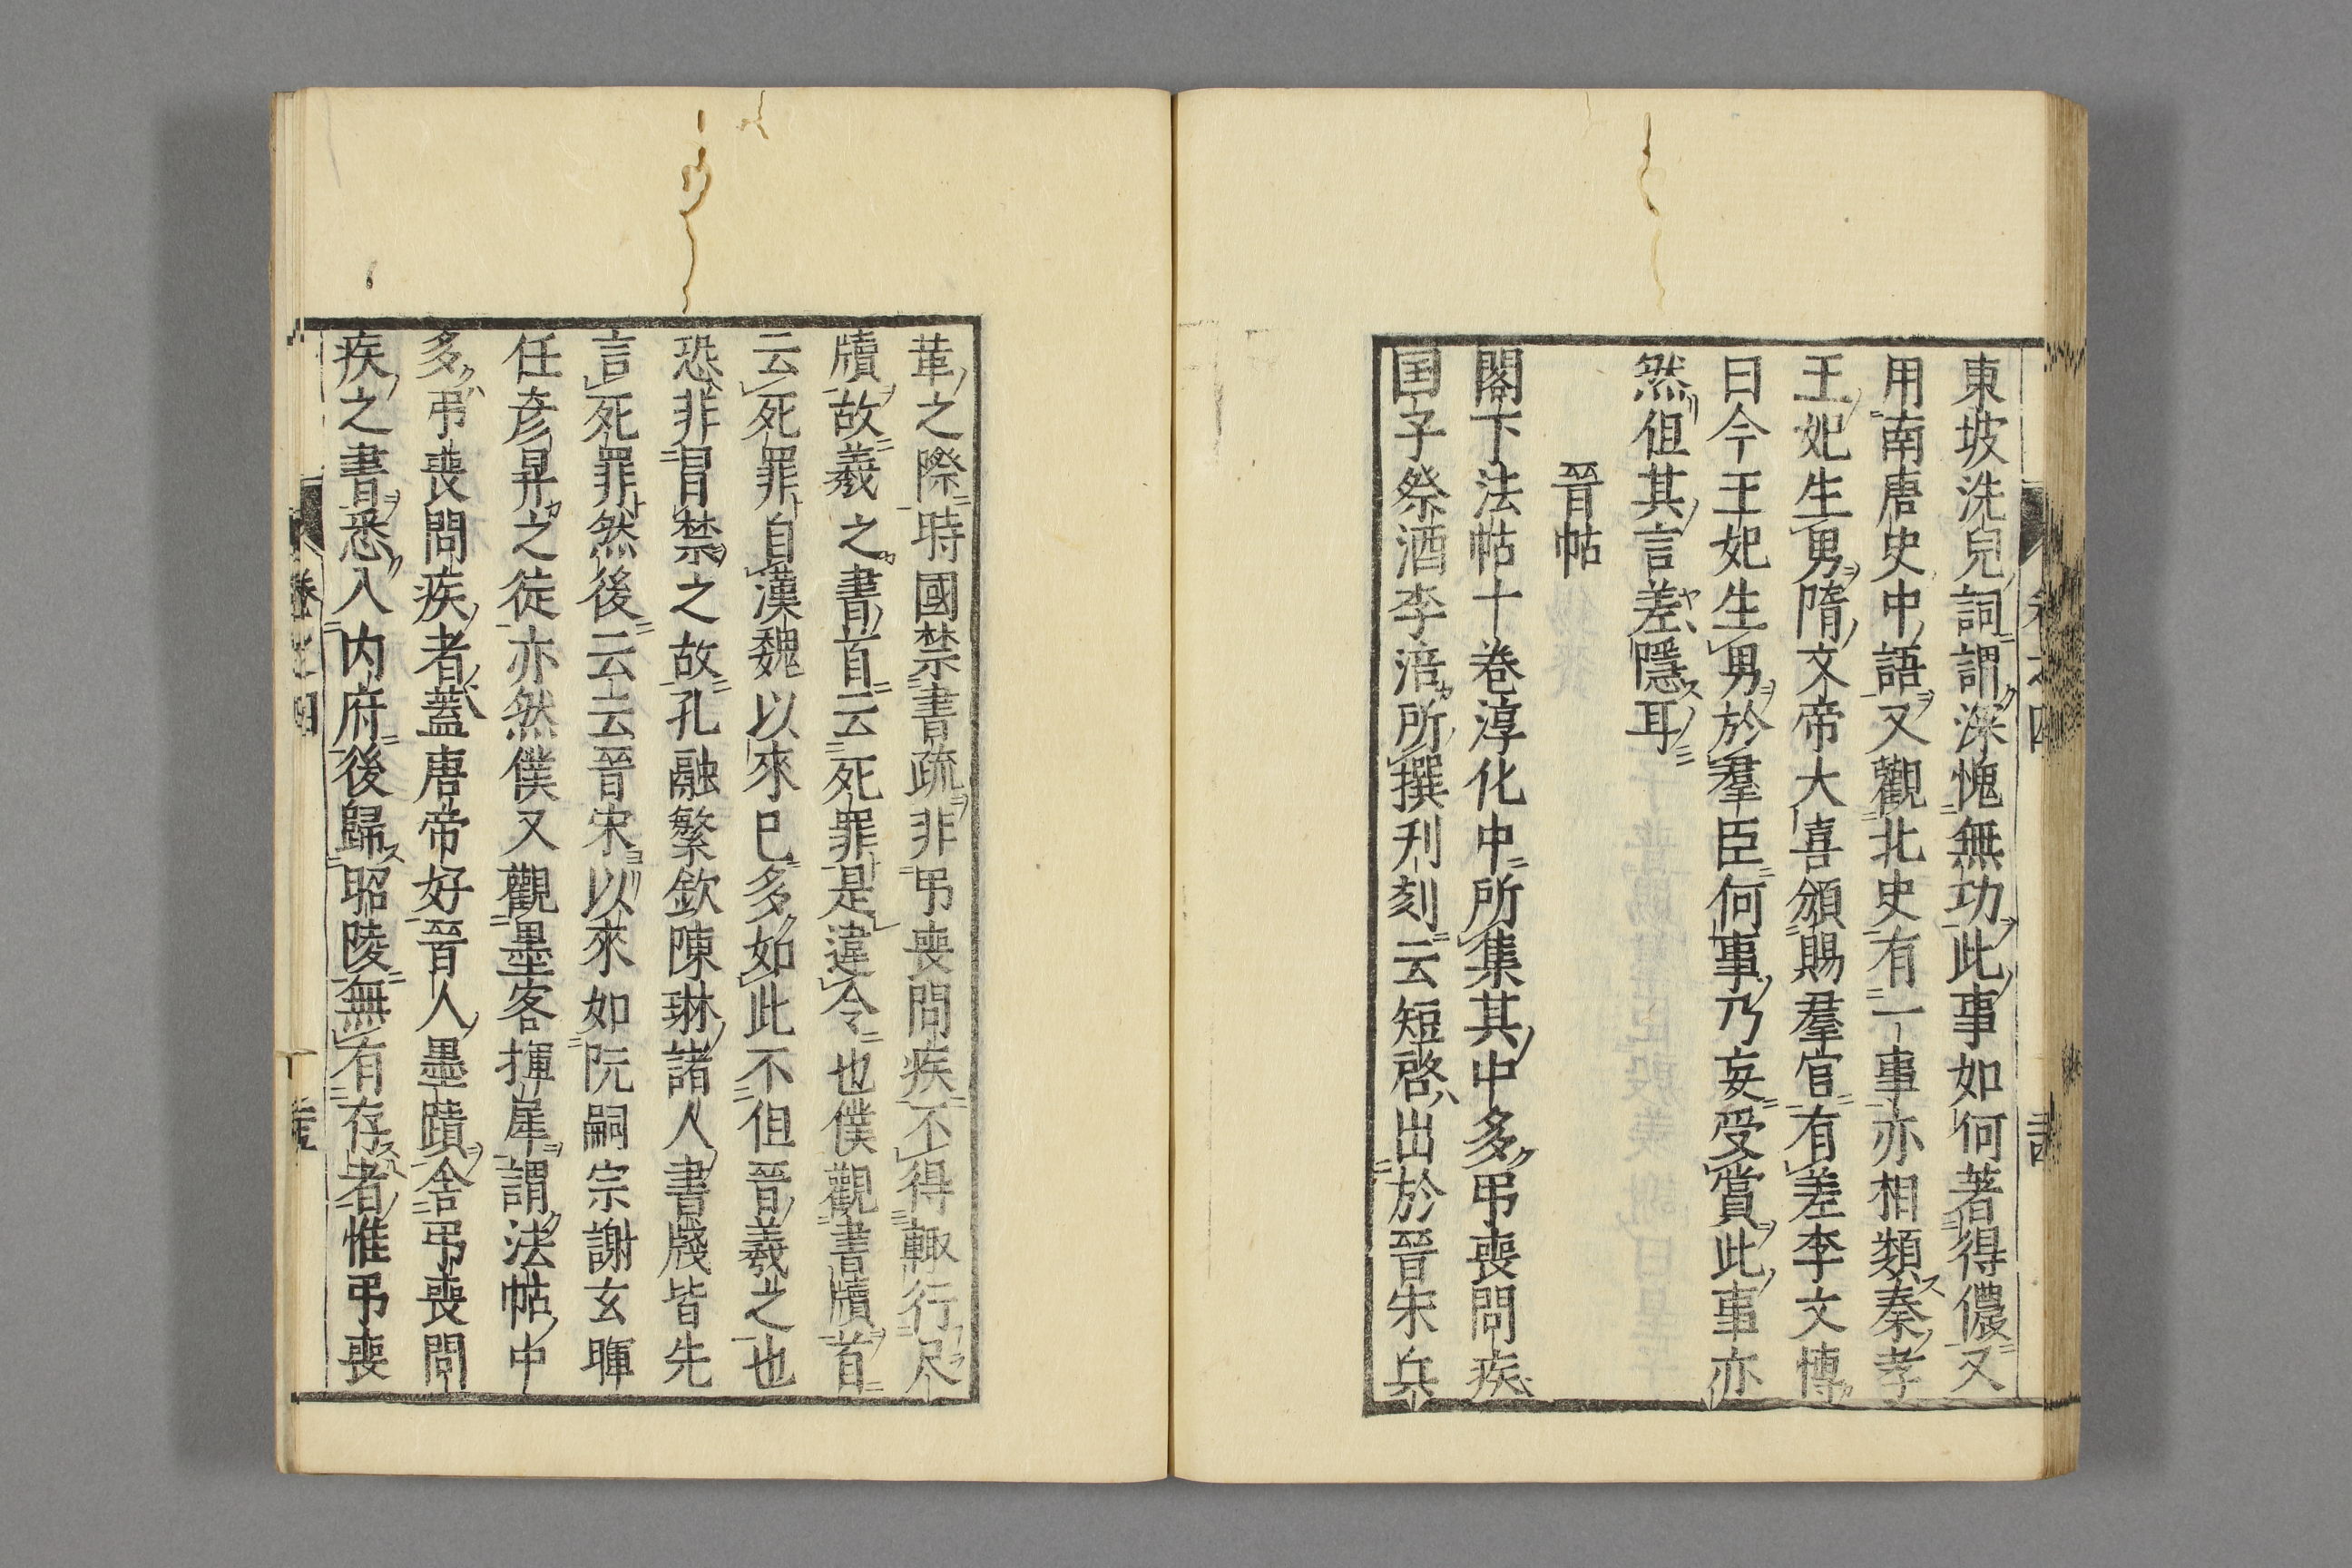 東坡洗兒詞謂深愧無功此事如何著得儂又
用南唐史中語又觀北史有一事亦相類秦孝
王妃生男隋文帝大喜頒賜羣官有差李文博
曰今王妃生男於羣臣何事乃妄受賞此事亦
然但其言差隱耳
晉帖
閣下法帖十卷淳化中所集其中多弔喪問疾
国子祭酒李涪所撰刋刻云短啓出於晉宋兵
革之際時國禁書疏非弔喪問疾不得輙行尺
牘故羲之書首云死罪是違令也僕觀書牘首
云死罪自漢魏以來已多如此不但晉羲之也
恐非冒禁之故孔融繁欽陳琳諸人書牋皆先
言死罪然後云云晉宋以來如阮嗣宗謝玄暉
任彦昇之徒亦然僕又觀墨客揮犀謂法帖中
多弔喪問疾者蓋唐帝好晉人墨蹟舎弔喪問
疾之書悉入内府後歸昭陵無有存者惟弔喪
卷之四